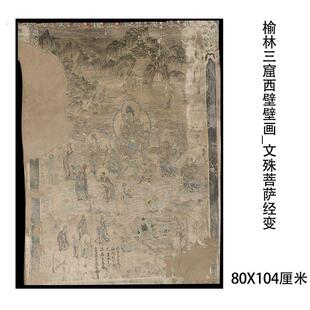 榆林三窟西壁壁画_文殊菩萨经变
80X104厘米